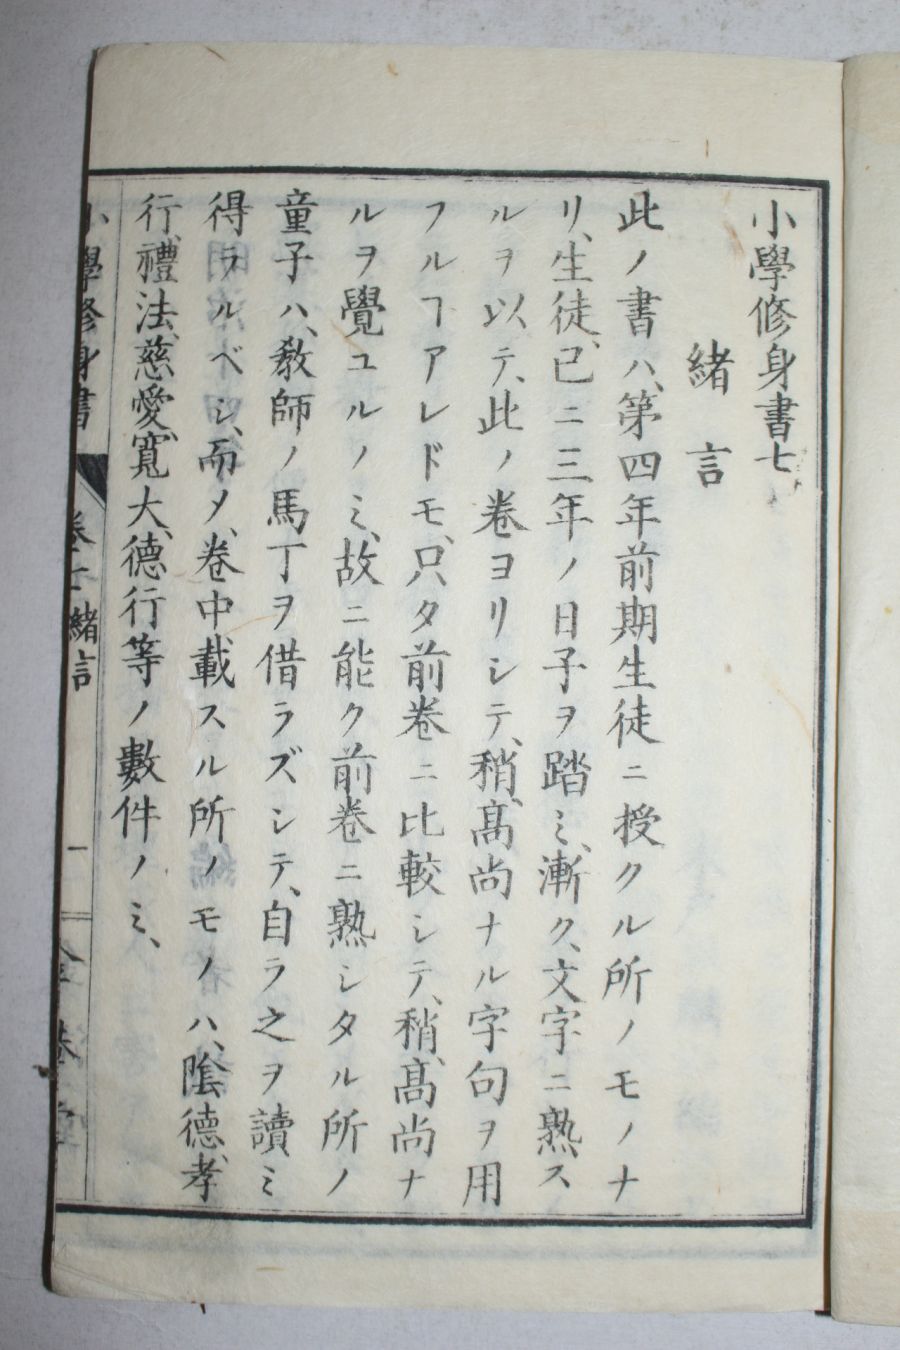 小學修身書七
緒言
此ノ書ハ、第四年前期生徒ニ授クル所ノモノナ
リ、生徒、已ニ三年ノ日子ヲ踏ミ、漸ク、文字ニ熟ス
ルヲ以テ、此ノ卷ヨリシテ、稍、髙尚ナル字句ヲ用
フルヿアレドモ、只タ前卷ニ比較シテ、稍、髙尚ナ
ルヲ覺ユルノミ、故ニ能ク前卷ニ熟シタル所ノ
童子ハ、教師ノ馬丁ヲ借ラズシテ、自ラ之ヲ讀ミ
得ラルベシ、而メ、卷中載スル所ノモノハ、陰德、孝
行、禮法、慈愛、寬大、德行等ノ數件ノミ、
小學修身書 卷七緒言 一